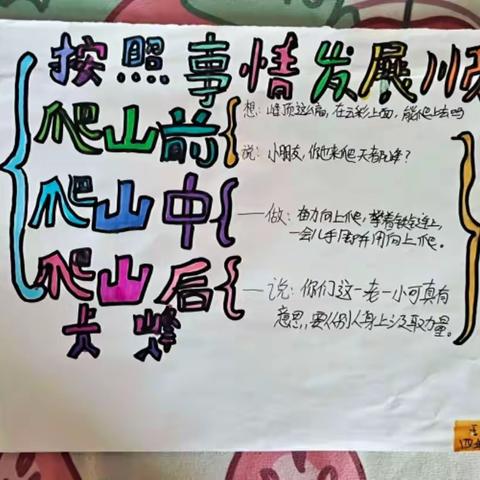 按照事情发展顺
爬山前
想：峰顶这么高，在云彩上面，能爬上去吗
说：小朋友，你也来爬天都峰？
爬山中
做：奋力向上爬，攀着铁链上，
一会儿手脚并用向上爬。
爬山后
说：你们这一老一小可真有
意思，要从别人身上汲取力量。